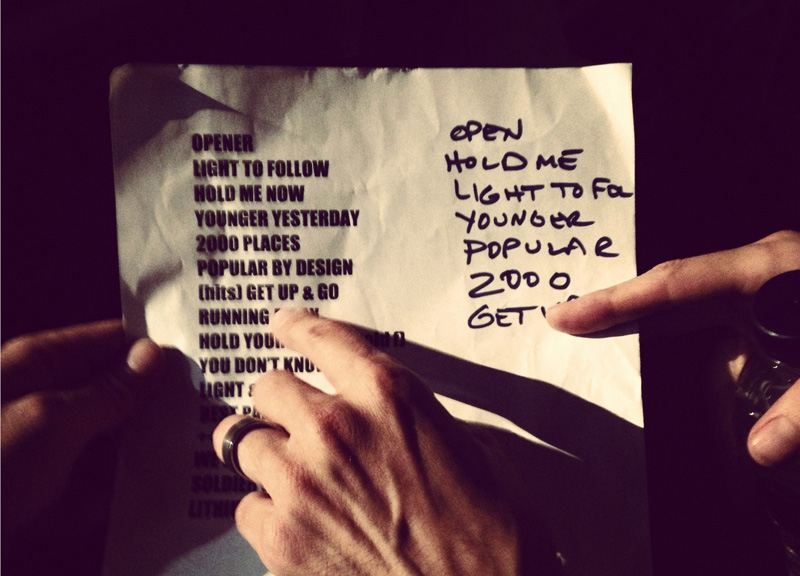 OPENER
LIGHT TO FOLLOW
HOLD ME NOW
YOUNGER YESTERDAY
2000 PLACES
POPULAR BY DESIGN
(hits) GET UP & GO
RUNNING
HOLD
YOU DON'T
LIGHT
BEST
OPEN
HOLD ME
LIGHT TO FOL
YOUNGER
POPULAR
2000
GET